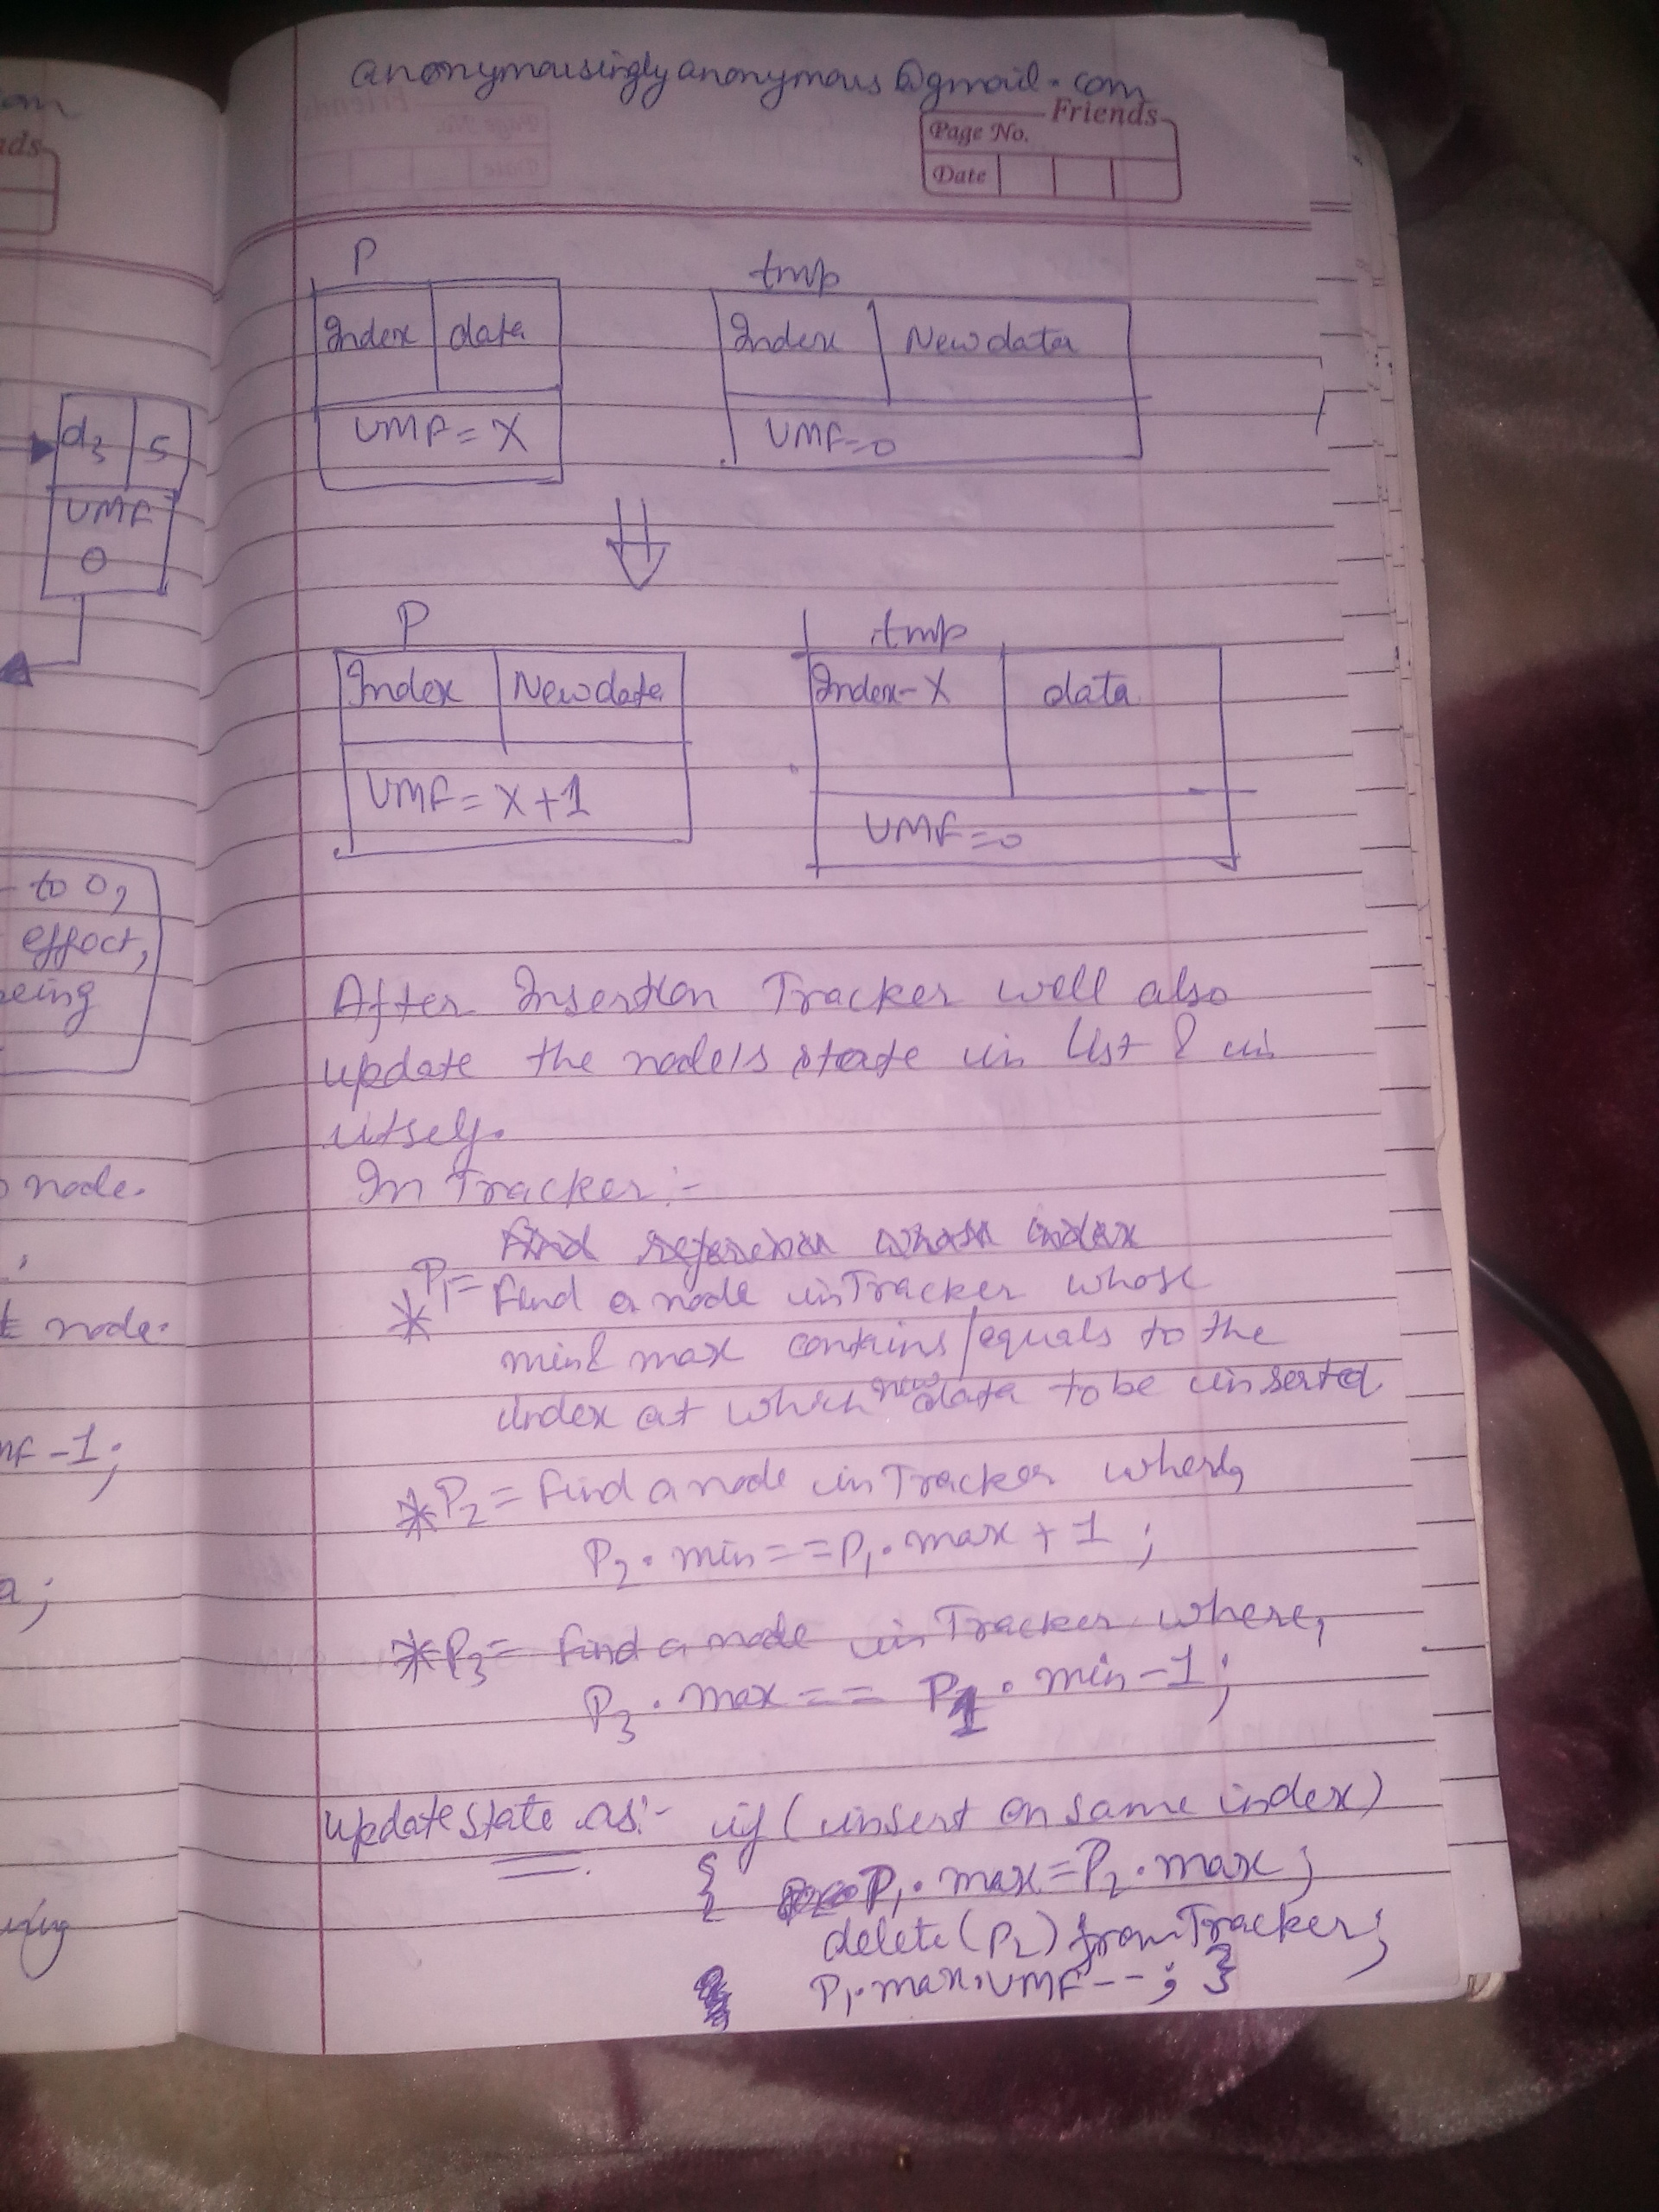 om
ds
d3 5
UMF
0
- to 0,
effect,
being
node.
,
node.
MF-1;
a;
anonymousinglyanonymous@gmail.com
Friends
Page No.
Date
P
tmp
Index data
Index New data
UMF = X
UMF=0
P
tmp
Index New data
Index-X data
UMF = X+1
UMF=0
After Insertion Tracker will also
update the node's state in List & in
itself.
In Tracker:-
find reference whose index
* P1= find a node in Tracker whose
min& max contains/equals to the
index at which new data to be inserted
* P2 = find a node in Tracker where,
P2.min==P1.max+1;
* P3= find a node in Tracker where,
P3.max== P1.min-1;
update state as:- if (insert on same index)
{ P1.max=P2.max;
delete(P2) from Tracker;
P1.max.UMF--; }